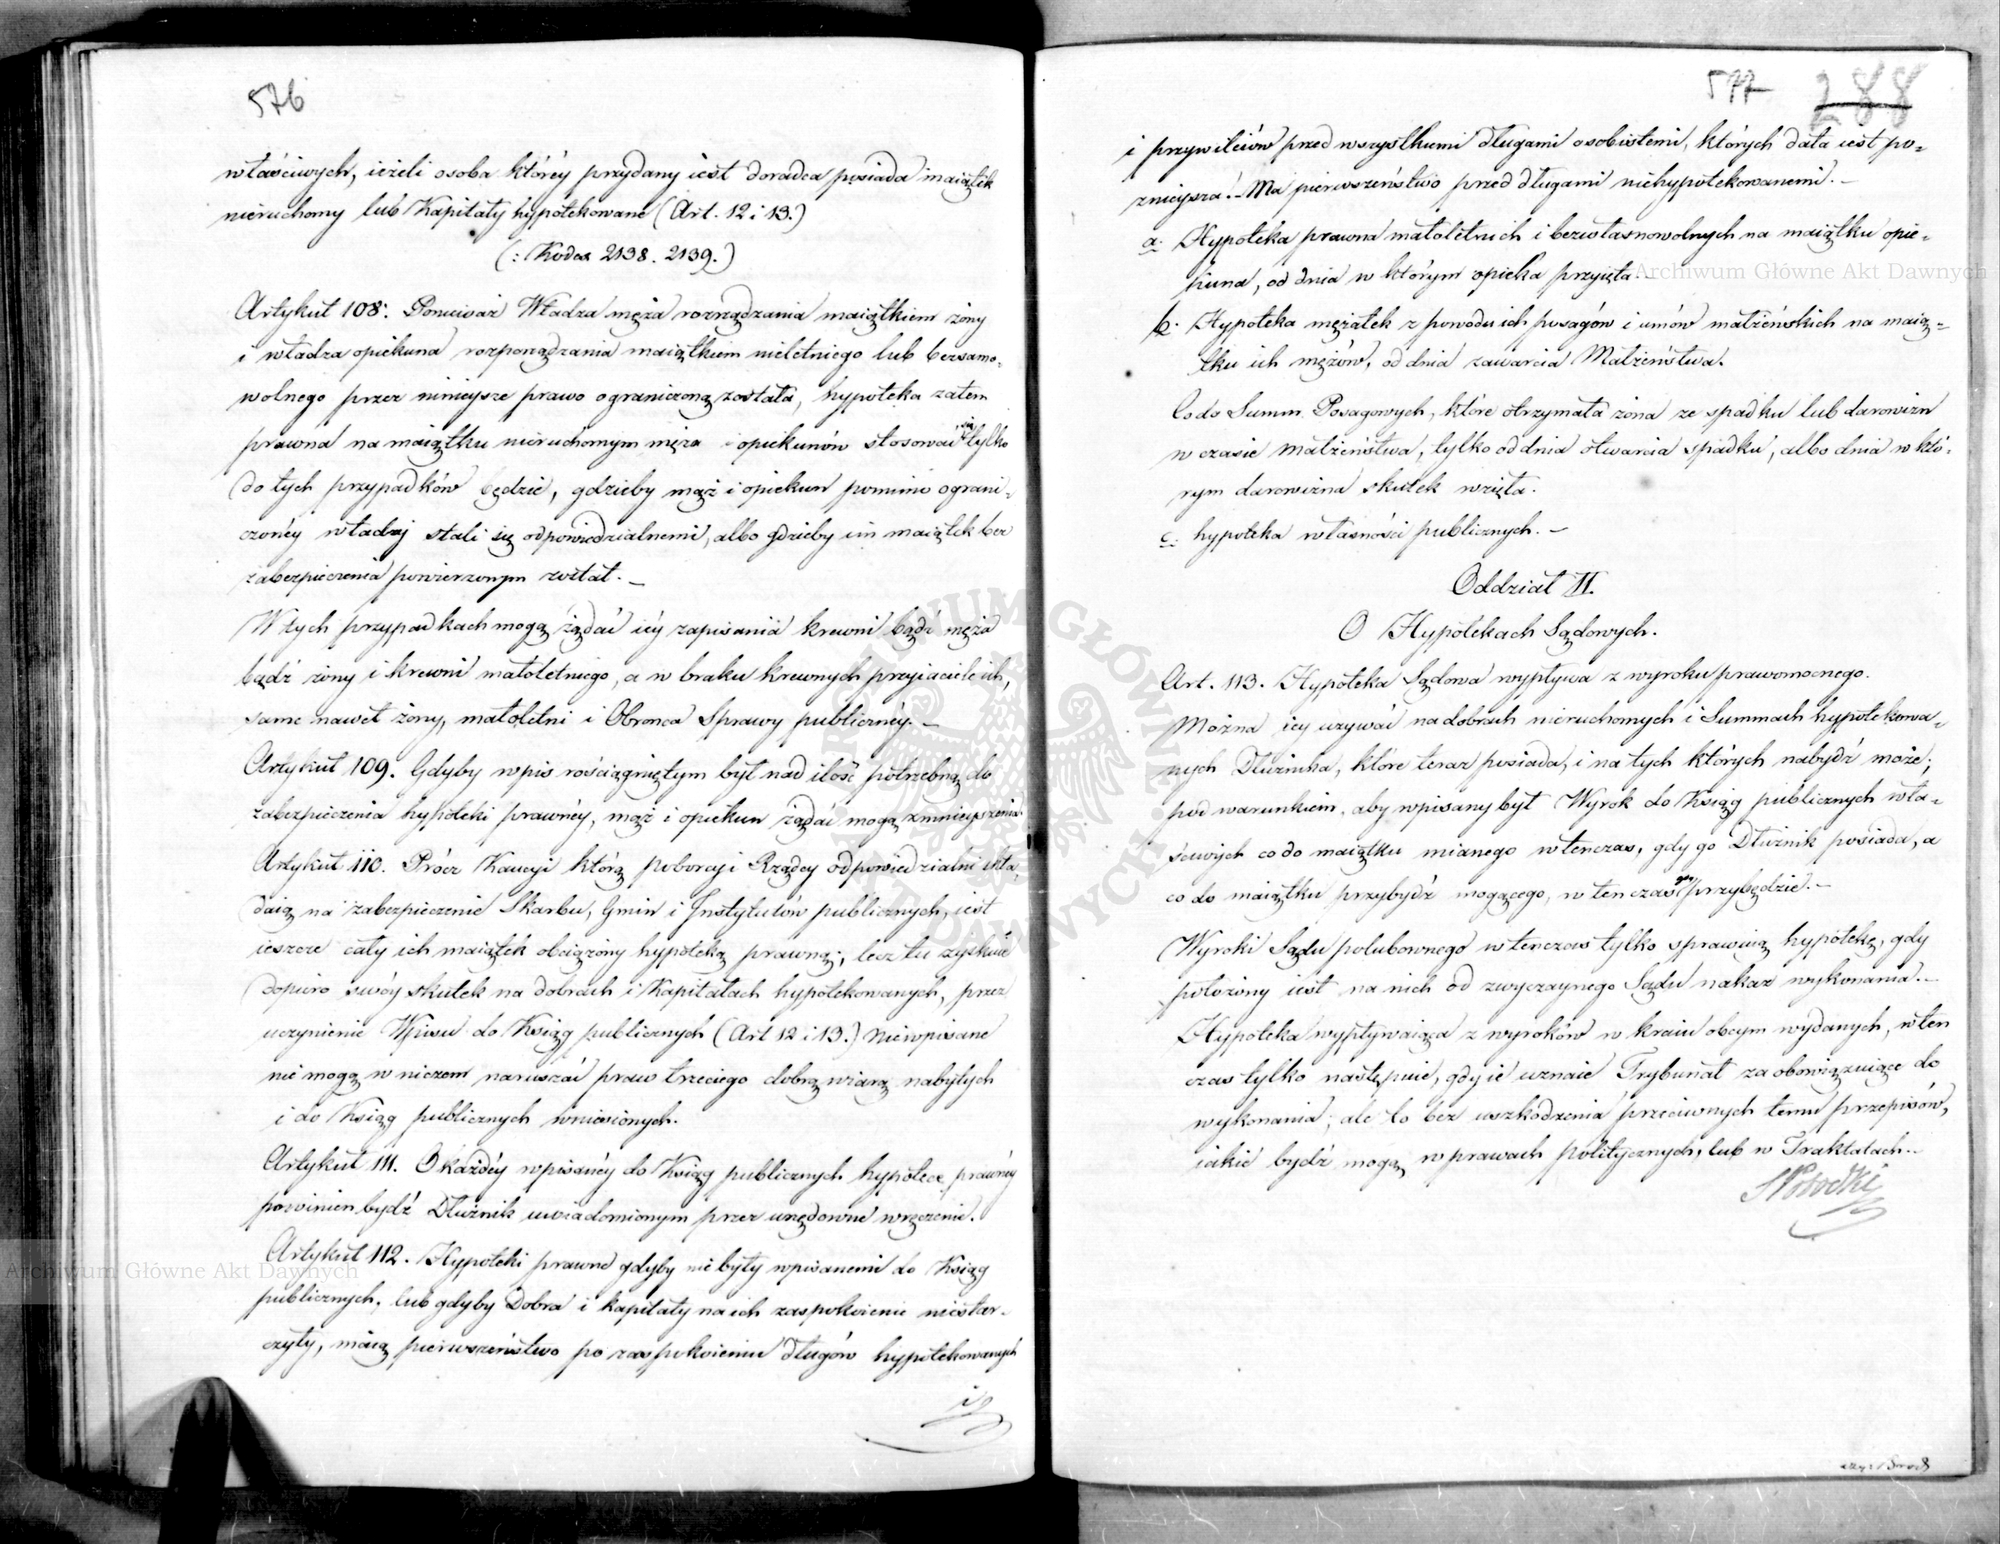 576
właściwych, ieżeli osoba któréy przydany iest doradca posiada maiątek
nieruchomy lub Kapitały hypotekowane (Art. 12 i 13.)
(: Kodex 2138. 2139.)
Artykuł 108: Ponieważ Władza męża rozrządzania maiątkiem żony
i władza opiekuna rozporządzania maiątkiem nieletniego lub bezsamo-
wolnego przez ninieysze prawo ograniczoną została, hypoteka zatem
prawna na maiątku nieruchomym męża i opiekunów stosować się tylko
do tych przypadków będzie, gdzieby mąż i opiekun pomimo ograni-
czonéy władzy stali się odpowiedzialnemi, albo gdzieby im maiątek bez
zabezpieczenia powierzonym został. –
W tych przypadkach mogą żądać iéy zapisania krewni bądź męża
bądź żony i krewni małoletniego, a w braku krewnych przyiaciele ich,
same nawet żony, małoletni i Obrońca Sprawy publicznéy. –
Artykuł 109. Gdyby wpis rościągniętym był nad ilość potrzebną do
zabezpieczenia hypoteki prawnéy, mąż i opiekun żądać mogą zmnieyszenia
Artykuł 110. Prócz Kaucyi którą poborcy i Rządcy odpowiedzialni skła-
daią na zabezpieczenie Skarbu, Gmin i Instytutów publicznych, iest
ieszcze cały ich maiątek obciążony hypoteką prawną; lecz tu zyskuie
dopiero swóy skutek na dobrach i Kapitałach hypotekowanych, przez
uczynienie Wpisu do Ksiąg publicznych (Art 12 i 13.) Niewpisane
nie mogą w niczem naruszać praw trzeciego dobrą wiarą nabytych
i do Ksiąg publicznych wniesionych.
Artykuł 111. O każdéy wpisanéy do Ksiąg publicznych hypotece prawnéy
powinien bydź Dłużnik uwiadomionym przez urzędowne wręczenie.
Artykuł 112. Hypoteki prawne gdyby nie były wpisanemi do Ksiąg
publicznych, lub gdyby Dobra i kapitały na ich zaspokoienie niestar-
czyły, maią pierwszeństwo po zaspokoieniu długów hypotekowanych
i
577 288
i przywileiów przed wszystkiemi długami osobistemi, których data iest po-
znieysza. – Ma pierwszeństwo przed długami niehypotekowanemi. –
a. Hypoteka prawna małoletnich i bezwłasnowolnych na maiątku opie-
kuna, od dnia w którym opieka przyięta. –
b. Hypoteka mężatek z powodu ich posagów i umów małżeńskich na maią-
tku ich mężów, od dnia zawarcia Małżeństwa.
Co do Summ Posagowych, które otrzymała żona ze spadku lub darowizn
w czasie małżeństwa, tylko od dnia otwarcia spadku, albo dnia w któ-
rym darowizna skutek wzięła.
c. hypoteka własności publicznych. –
Oddział II.
O Hypotekach Sądowych.
Art. 113. Hypoteka Sądowa wypływa z wyroku prawomocnego.
Można iey używać na dobrach nieruchomych i Summach hypotekowa-
nych Dłużnika, które teraz posiada, i na tych których nabydź może;
pod warunkiem, aby wpisany był Wyrok do Ksiąg publicznych wła-
ściwych co do maiątku mianego wtenczas, gdy go Dłużnik posiada, a
co do maiątku przybydź mogącego, w ten czas gdy przybędzie. –
Wyroki Sądu polubownego wtenczas tylko sprawuią hypotekę, gdy
położony iest na nich od zwyczaynego Sądu nakaz wykonania. –
Hypoteka wypływaiąca z wyroków w kraiu obcym wydanych, w ten
czas tylko następuie, gdy ie uznaie Trybunał za obowiązuiące do
wykonania; ale to bez uszkodzenia przeciwnych temu przepisów,
iakie bydź mogą w prawach politycznych, lub w Traktatach. –
SPotocki
Archiwum Główne Akt Dawnych
Archiwum Główne Akt Dawnych
ARCHIWUM GŁÓWNE AKT DAWNYCH